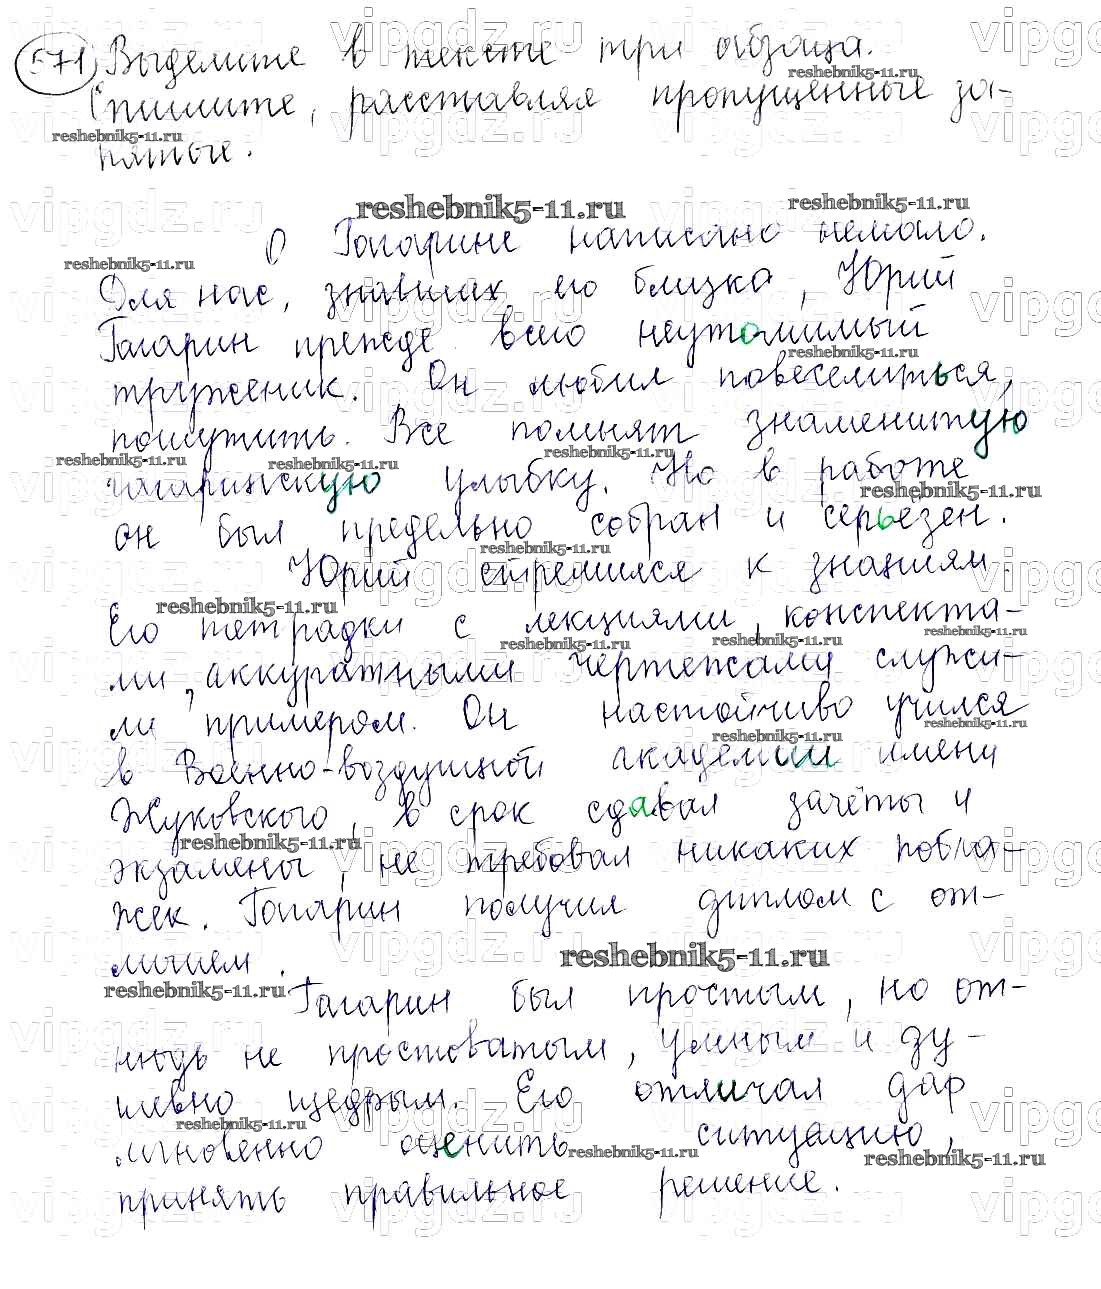 571 Выделите в тексте три абзаца.
Спишите, расставляя пропущенные за-
пятые.
О Гагарине написано немало.
Для нас, знавших его близко, Юрий
Гагарин прежде всего неутомимый
труженик. Он любил повеселиться,
пошутить. Все помнят знаменитую
гагаринскую улыбку. Но в работе
он был предельно собран и серьёзен.
Юрий стремился к знаниям.
Его тетрадки с лекциями, конспекта-
ми, аккуратными чертежами служи-
ли примером. Он настойчиво учился
в Военно-воздушной академии имени
Жуковского, в срок сдавал зачёты и
экзамены, не требовал никаких побла-
жек. Гагарин получил диплом с от-
личием.
Гагарин был простым, но от-
нюдь не простоватым, умным и ду-
шевно щедрым. Его отличал дар
мгновенно оценить ситуацию,
принять правильное решение.
vipgdz.ru
reshebnik5-11.ru